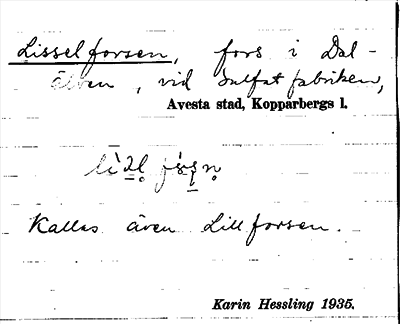 Lisselforsen, fors i Dal-
älven, vid Sulfatfabriken,
Avesta stad, Kopparbergs l.
Kallas även Lillforsen.
Karin Hessling 1935.